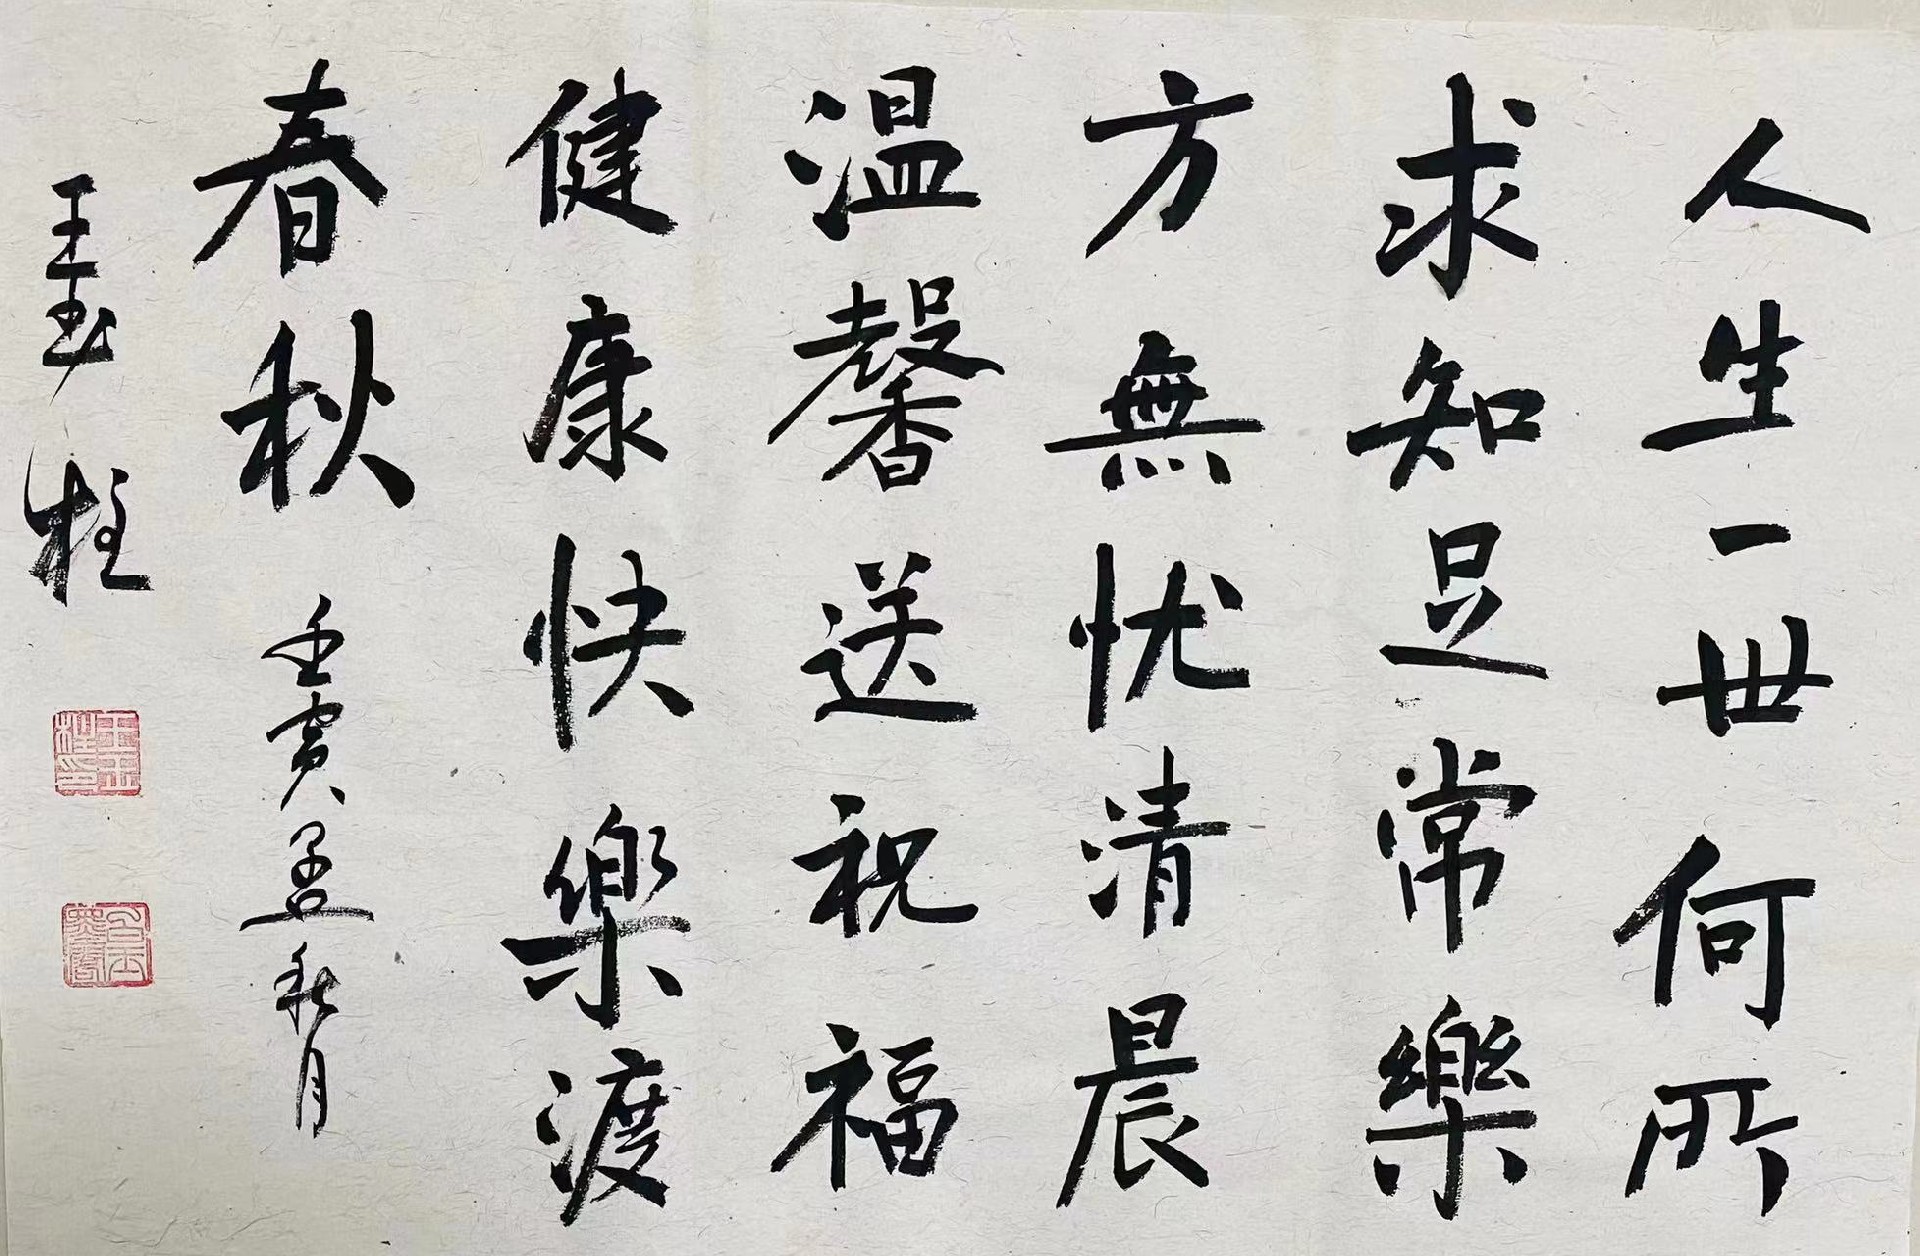 人生一世何所
求知足常樂
方無忧清晨
温馨送祝福
健康快樂渡
春秋
壬寅孟秋月
王玉柱